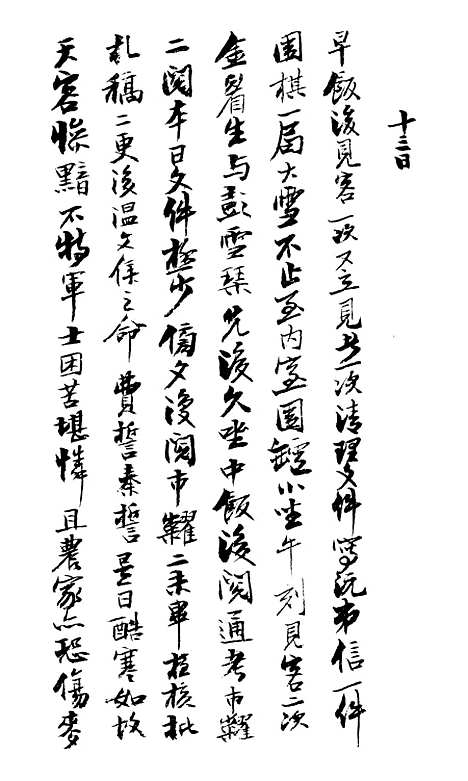 十三日
早飯後見客一次又立見者一次清理文件寫沅弟信一件
圍棋一局大雪不止至内室圍鑪小坐午刻見客二次
金眉生与彭雪琴先後久坐中飯後閱通考市糴
二閱本日文件極少傍夕後閱市糴二未畢核批
札稿二更後温文侯之命費誓秦誓是日酷寒如故
天容慘黯不特軍士困苦堪憐且農家亦恐傷麥